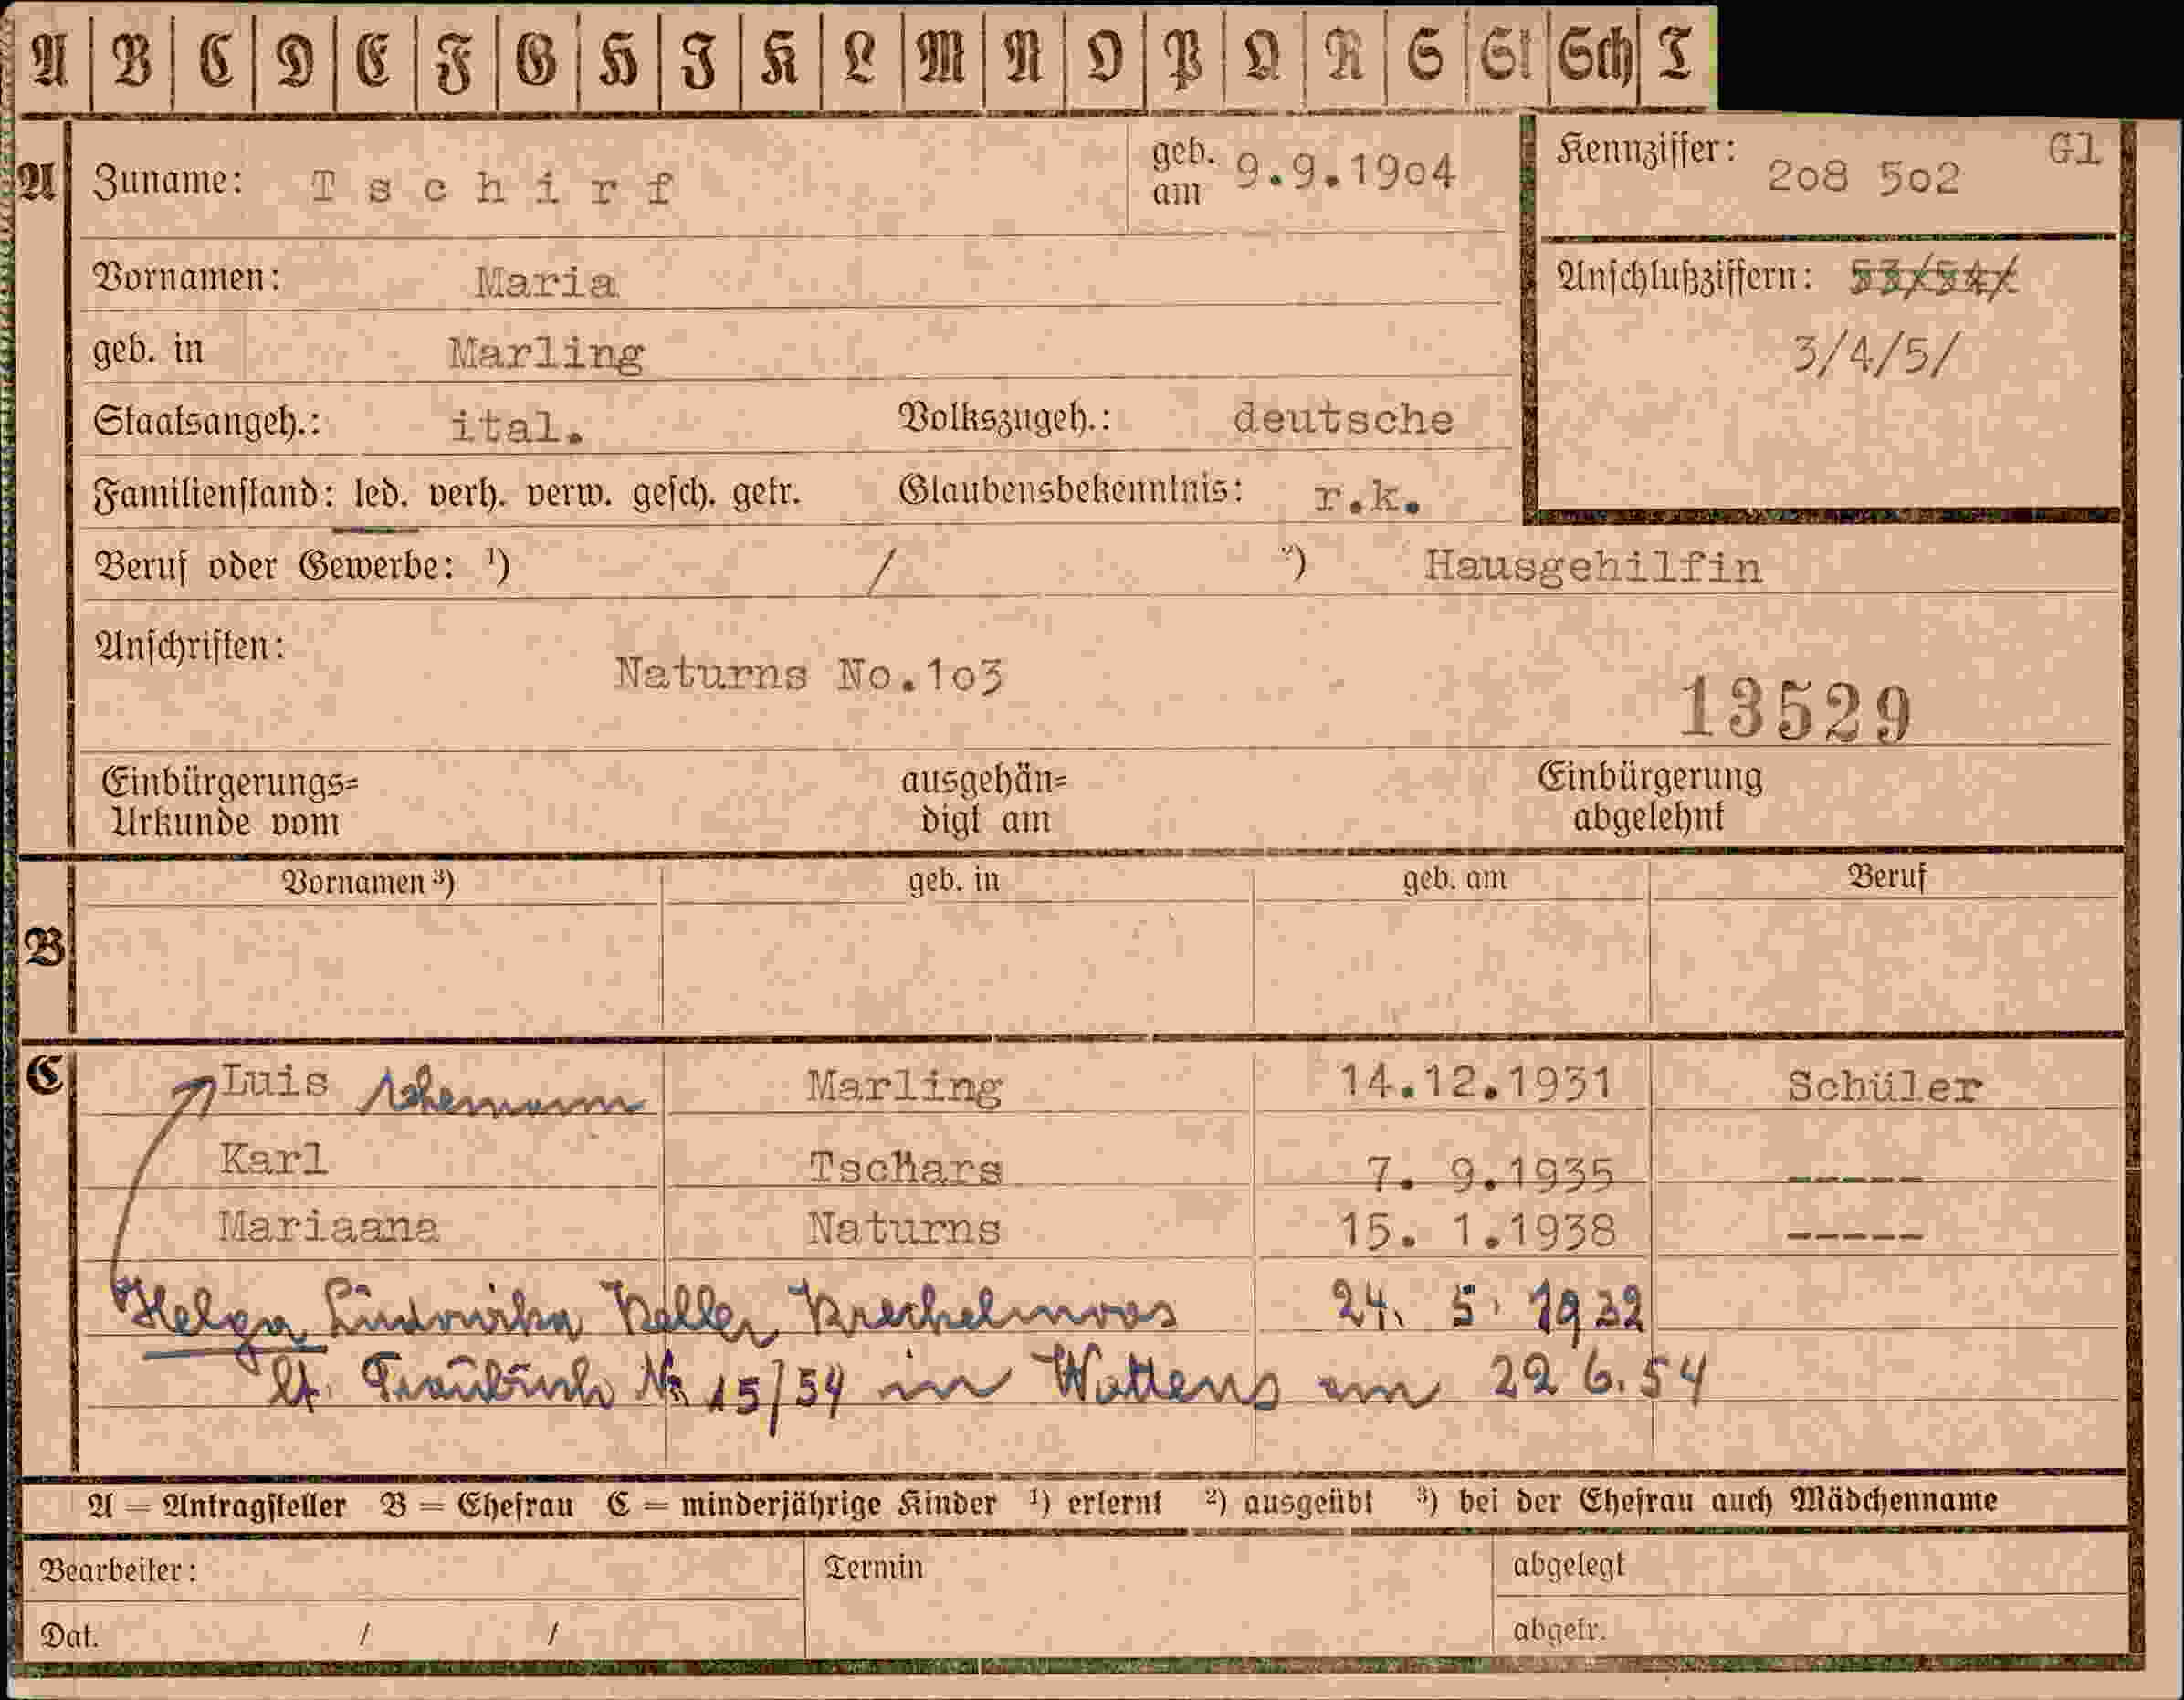 A B C D E F G H I K L M N O P Q R S St Sch T
A Zuname: Tschirf geb. am 9.9.1904 Kennziffer: 208 502 Gl
Vornamen: Maria Anschlußziffern: 53/54/
geb. in Marling 3/4/5/
Staatsangeh.: ital. Volkszugeh.: deutsche
Familienstand: led. verh. verw. gesch. getr. Glaubensbekenntnis: r.k.
Beruf oder Gewerbe: ¹) / ²) Hausgehilfin
Anschriften:
Naturns No.103
13529
Einbürgerungs= ausgehän= Einbürgerung
Urkunde vom digt am abgelehnt
Vornamen ³) geb. in geb. am Beruf
B
C Luis Marling 14.12.1931 Schüler
Karl Tschars 7. 9.1935 -----
Mariaana Naturns 15. 1.1938 -----
Helga Keller 24. 5. 1932
lt. Traubuch Nr 15/54 in Wattens am 22 6.54
A = Antragsteller B = Ehefrau C = minderjährige Kinder ¹) erlernt ²) ausgeübt ³) bei der Ehefrau auch Mädchenname
Bearbeiter: Termin abgelegt
Dat. / / abgetr.